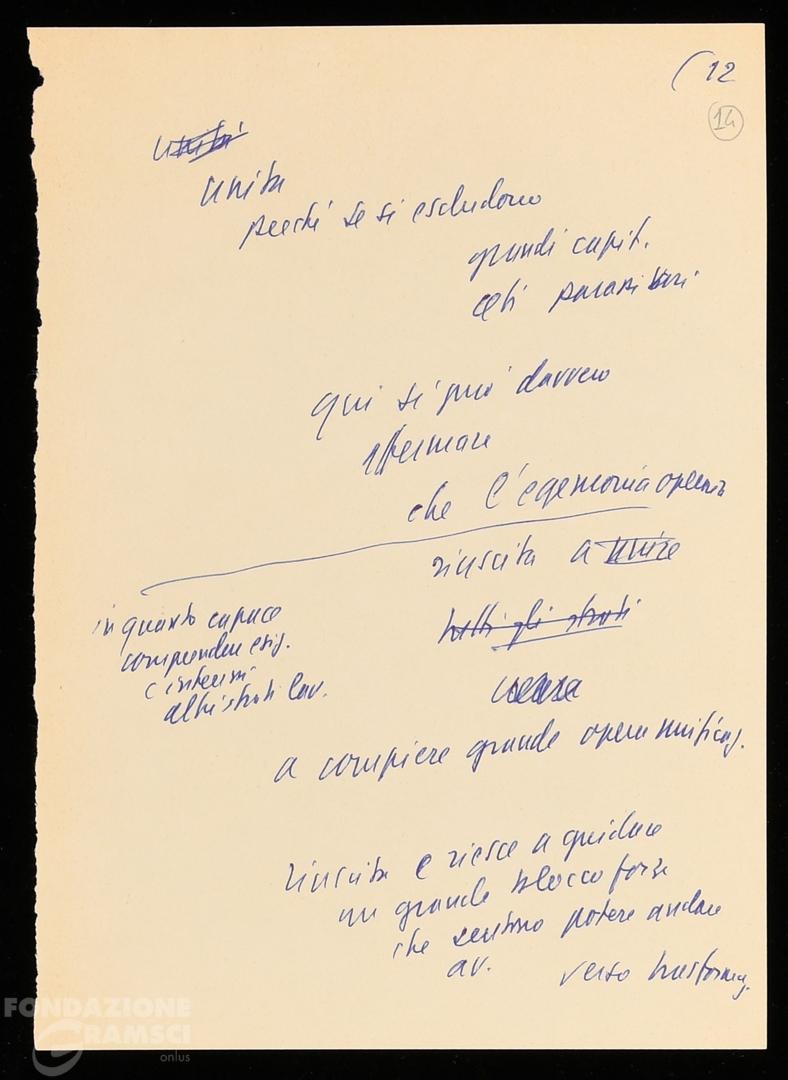 (12
14
unità
unità
perché se si escludono
grandi capit.
ceti parassitari
qui si può davvero
affermare
che l'egemonia operaia
riuscita a unire
tutti gli strati
in quanto capace
comprendere esig.
e interessi
altri strati lav.
a compiere grande opera unificaz.
riuscita e riesce a guidare
un grande blocco forze
che sentono potere andare
av. verso trasformaz.
FONDAZIONE
GRAMSCI
onlus